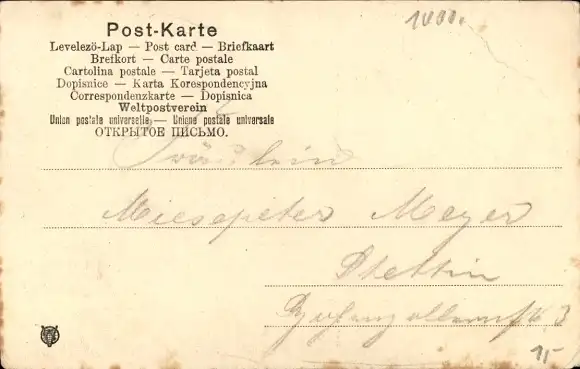 1000.
Post-Karte
Levelezö-Lap — Post card — Briefkaart
Brefkort — Carte postale
Cartolina postale — Tarjeta postal
Dopisnice — Karta Korespondencyjna
Correspondenzkarte — Dopisnica
Weltpostverein
Union postale universelle — Unione postale universale
ОТКРЫТОЕ ПИСЬМО.
Fräulein
Miesepeter Meyer
Stettin
3
1,-